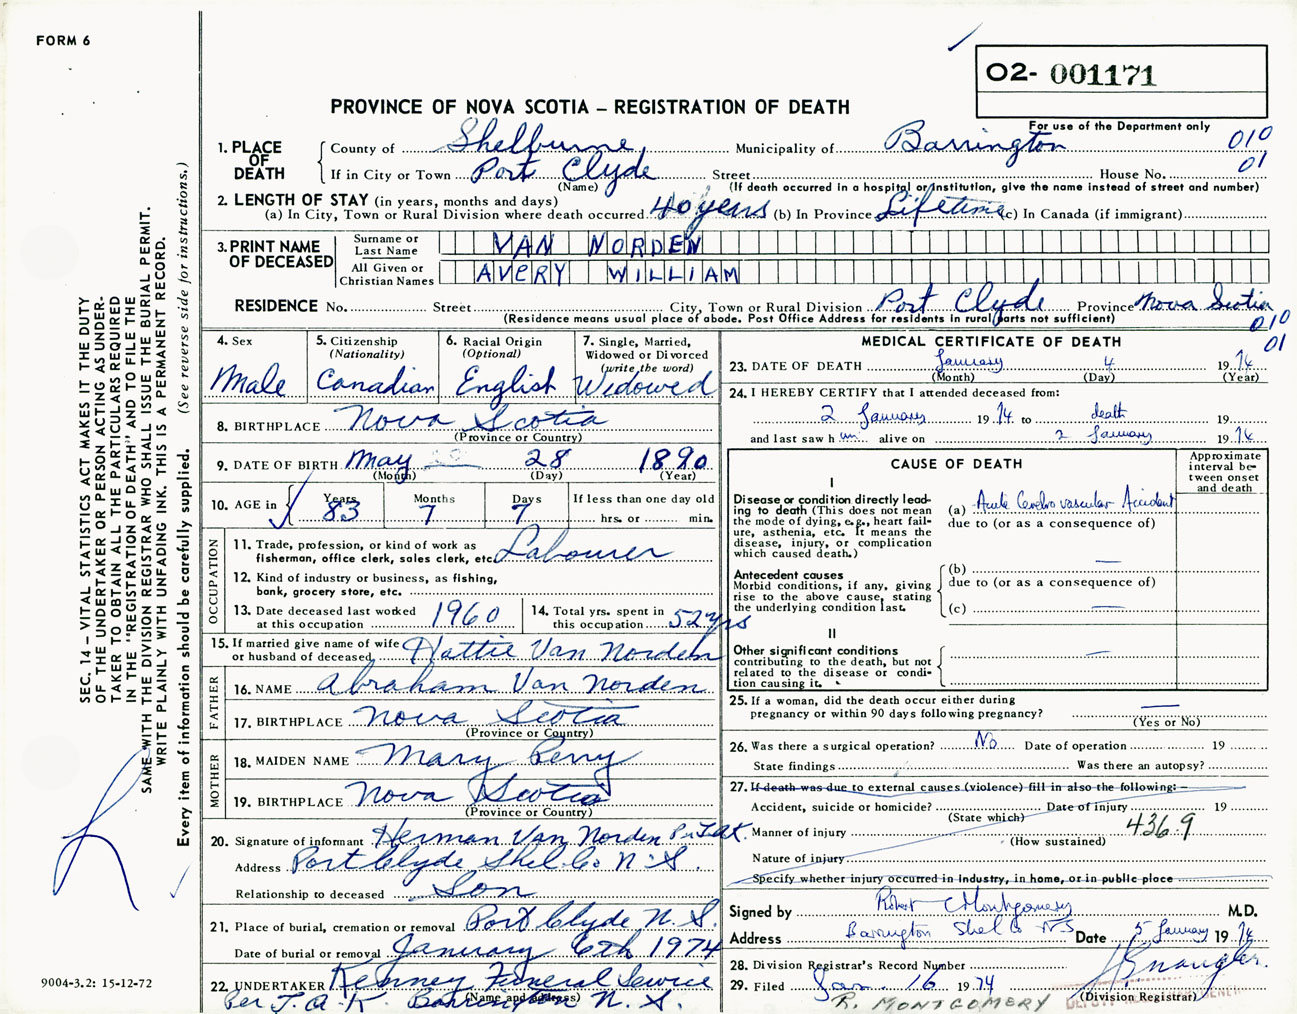 FORM 6
O2- 001171
PROVINCE OF NOVA SCOTIA – REGISTRATION OF DEATH
For use of the Department only
010
01
1. PLACE OF DEATH
County of Shelburne Municipality of Barrington
If in City or Town Port Clyde Street House No.
(Name) (If death occurred in a hospital or institution, give the name instead of street and number)
2. LENGTH OF STAY (in years, months and days)
(a) In City, Town or Rural Division where death occurred 40 years (b) In Province Lifetime (c) In Canada (if immigrant)
3. PRINT NAME OF DECEASED
Surname or Last Name VAN NORDEN
All Given or Christian Names AVERY WILLIAM
RESIDENCE No. Street City, Town or Rural Division Port Clyde Province Nova Scotia
(Residence means usual place of abode. Post Office Address for residents in rural parts not sufficient)
010
01
4. Sex
Male
5. Citizenship
(Nationality)
Canadian
6. Racial Origin
(Optional)
English
7. Single, Married,
Widowed or Divorced
(write the word)
Widowed
8. BIRTHPLACE Nova Scotia
(Province or Country)
9. DATE OF BIRTH May 28 1890
(Month) (Day) (Year)
10. AGE in
Years Months Days If less than one day old
83 7 7 hrs. or min.
OCCUPATION
11. Trade, profession, or kind of work as
fisherman, office clerk, sales clerk, etc. Labourer
12. Kind of industry or business, as fishing,
bank, grocery store, etc.
13. Date deceased last worked
at this occupation 1960
14. Total yrs. spent in
this occupation 52 yrs
15. If married give name of wife
or husband of deceased Hattie Van Norden
FATHER
16. NAME Abraham Van Norden
17. BIRTHPLACE Nova Scotia
(Province or Country)
MOTHER
18. MAIDEN NAME Mary Perry
19. BIRTHPLACE Nova Scotia
(Province or Country)
20. Signature of informant Herman Van Norden Per J.A.K.
Address Port Clyde Shel. Co. N.S.
Relationship to deceased Son
21. Place of burial, cremation or removal Port Clyde N.S.
Date of burial or removal January 6th 1974
22. UNDERTAKER Kenney Funeral Service
(Name and address)
Per J.A.K. Barrington N.S.
MEDICAL CERTIFICATE OF DEATH
23. DATE OF DEATH January 4 1974
(Month) (Day) (Year)
24. I HEREBY CERTIFY that I attended deceased from:
2 January 1974 to death 19
and last saw him alive on 2 January 1974
CAUSE OF DEATH
Approximate
interval be-
tween onset
and death
I
Disease or condition directly lead-
ing to death (This does not mean
the mode of dying, e.g., heart fail-
ure, asthenia, etc. It means the
disease, injury, or complication
which caused death.)
(a) Acute Cerebro vascular Accident
due to (or as a consequence of)
Antecedent causes
Morbid conditions, if any, giving
rise to the above cause, stating
the underlying condition last.
(b) —
due to (or as a consequence of)
(c) —
II
Other significant conditions
contributing to the death, but not
related to the disease or condi-
tion causing it.
—
25. If a woman, did the death occur either during
pregnancy or within 90 days following pregnancy? —
(Yes or No)
26. Was there a surgical operation? No Date of operation 19
State findings Was there an autopsy?
27. If death was due to external causes (violence) fill in also the following: –
Accident, suicide or homicide? Date of injury 19
(State which)
Manner of injury 4369
(How sustained)
Nature of injury
Specify whether injury occurred in industry, in home, or in public place
Signed by Robert C Montgomery M.D.
Address Barrington Shel Co NS Date 5 January 1974
28. Division Registrar's Record Number
29. Filed Jan. 16 1974
(Division Registrar)
R. MONTGOMERY
SEC. 14 – VITAL STATISTICS ACT MAKES IT THE DUTY
OF THE UNDERTAKER OR PERSON ACTING AS UNDER-
TAKER TO OBTAIN ALL THE PARTICULARS REQUIRED
IN THE "REGISTRATION OF DEATH" AND TO FILE THE
SAME WITH THE DIVISION REGISTRAR WHO SHALL ISSUE THE BURIAL PERMIT.
WRITE PLAINLY WITH UNFADING INK. THIS IS A PERMANENT RECORD.
Every item of information should be carefully supplied. (See reverse side for instructions.)
9004-3.2: 15-12-72